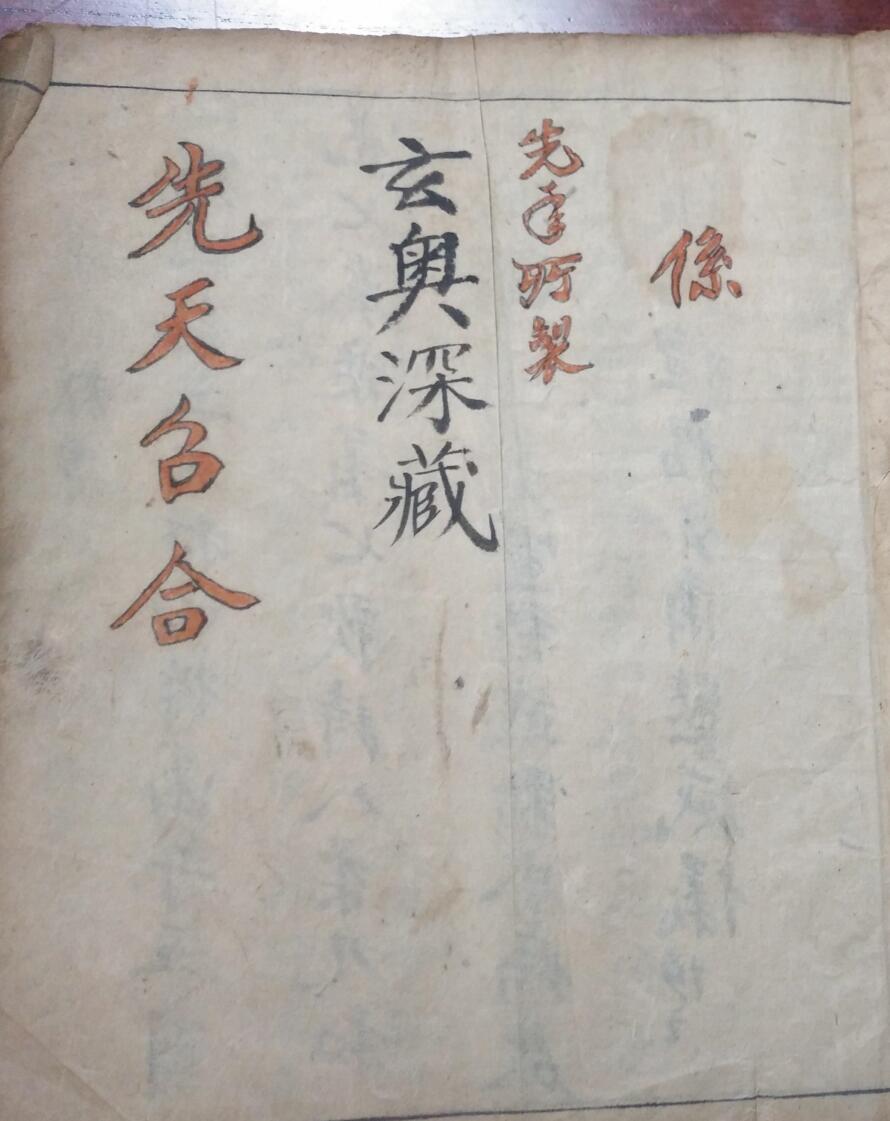 係
先年所製
玄奥深藏
先天召合